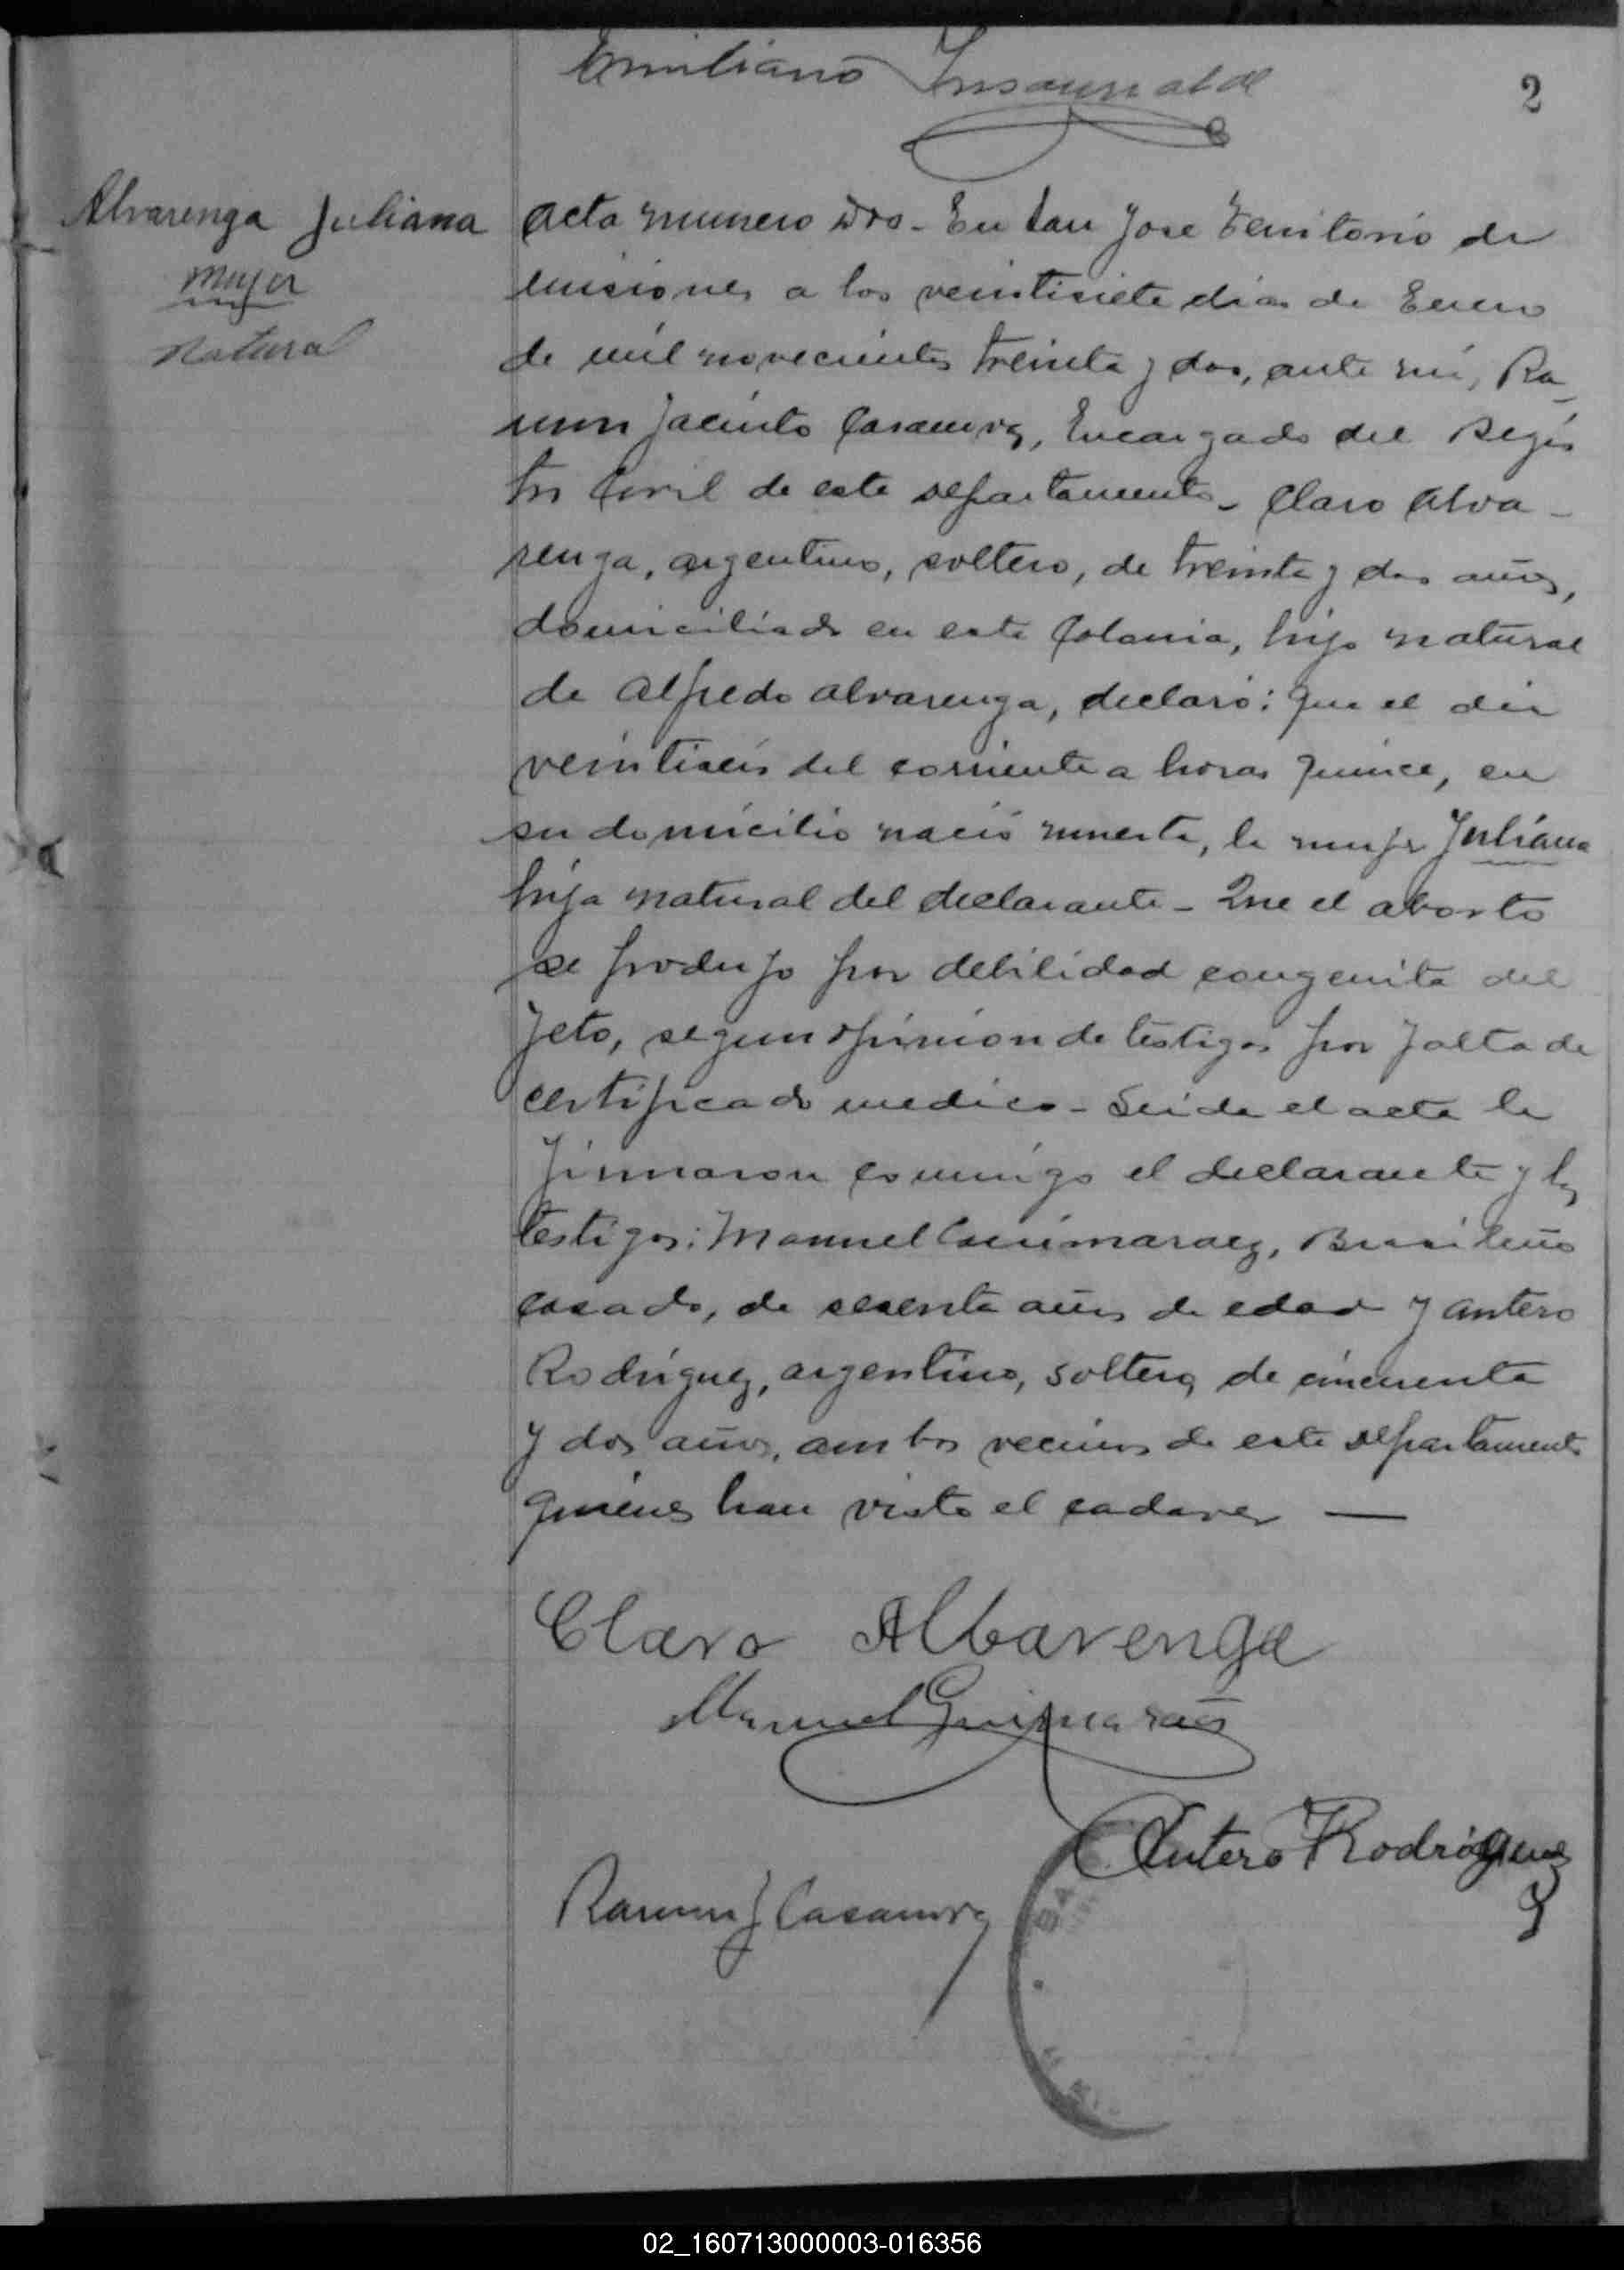 Emiliano Insaurralde
2
Alvarenga Juliana
Mujer
Natural
Acta numero Dos - En San Jose Territorio de
Misiones a los veintisiete dias de Enero
de mil novecientos treinta y dos, ante mi, Ra-
mon Jacinto Casanova, Encargado del Regis
tro Civil de este departamento - Claro Alva-
renga, argentino, soltero, de treinta y dos años,
domiciliado en esta Colonia, hijo natural
de Alfredo Alvarenga, declaró: Que el dia
veintiseis del corriente a horas quince, en
su domicilio nació muerta, la mujer Juliana
hija natural del declarante - Que el aborto
se produjo por debilidad congenita del
feto, segun opinion de testigos por falta de
certificado medico - Leida el acta la
firmaron conmigo el declarante y los
testigos: Manuel Guimaraez, Brasileño
casado, de sesenta años de edad y Antero
Rodriguez, argentino, soltero, de cincuenta
y dos años, ambos vecinos de este departamento
quienes han visto el cadaver —
Claro Albarenga
Manuel Guimarães
Antero Rodriguez
Ramon J Casanova
02_160713000003-016356